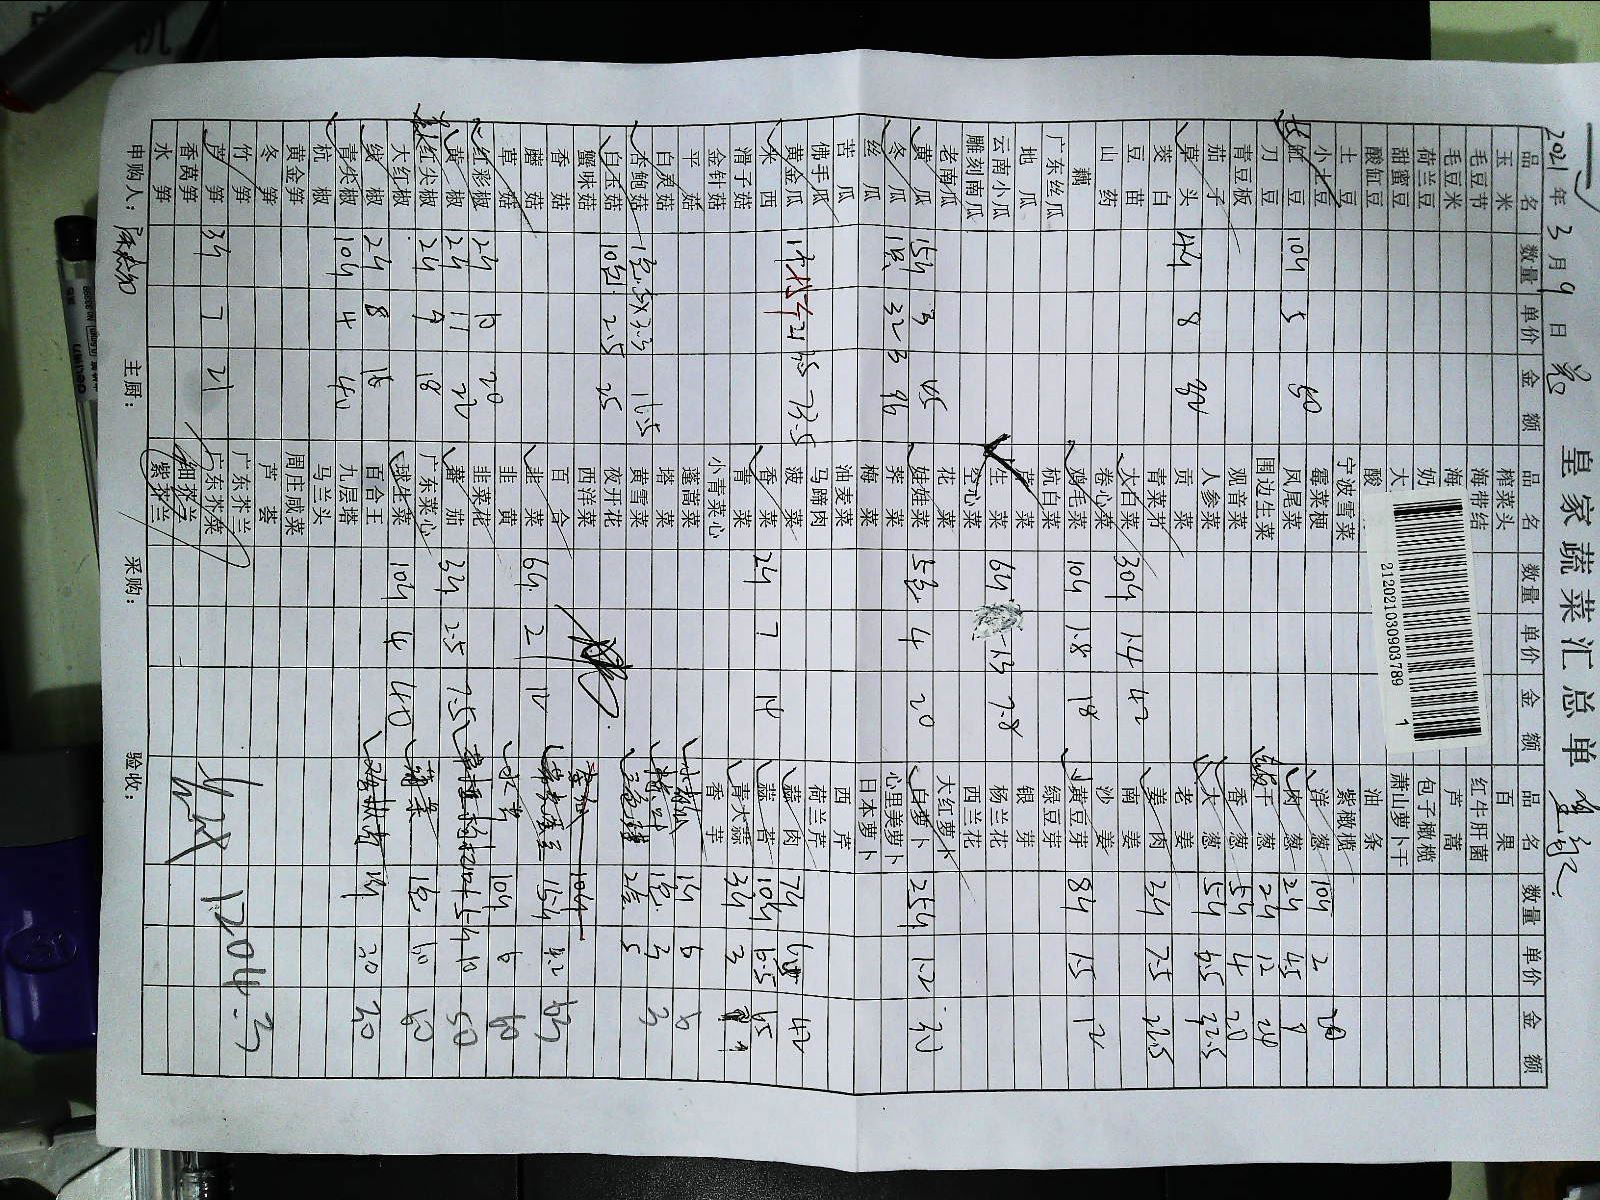 皇家蔬菜汇总单
2021年3月9日
品名 数量 单价 金额 品名 数量 单价 金额 品名 数量 单价 金额
玉米 榨菜头 百果
毛豆节 海带结 红牛肝菌
毛豆米 海 芦蒿
荷兰豆 奶 包子橄榄
甜蜜豆 大 萧山萝卜干
酸缸豆 酸 油条
土豆 宁波雪菜 紫橄榄
小土豆 霉菜梗 洋葱 10斤 2 20
长缸豆 10斤 5 50 凤尾菜 肉葱 2斤 4.5 9
刀豆 围边生菜 干葱 2斤 12 24
青豆板 观音菜 香葱 5斤 4 20
茄子 人参菜 大葱 5斤 4.5 22.5
草头 4斤 8 32 贡菜 老姜
茭白 青菜芥 姜肉 2斤 7.5
豆苗 大白菜 30斤 1.4 42 南姜
山药 卷心菜 沙姜
藕 鸡毛菜 10斤 1.8 18 黄豆芽 8斤 1.5 12
广东丝瓜 杭白菜 绿豆芽
地瓜 芹菜 银芽
云南小瓜 生菜 6斤 1.3 7.8 杨兰花
雕刻南瓜 空心菜 西兰花
老南瓜 花菜 大红萝卜
黄瓜 15斤 3 45 娃娃菜 5包 4 20 白萝卜 25斤 1.2 30
冬瓜 1只 32 3 96 荠菜 心里美萝卜
丝瓜 梅菜 日本萝卜
苦瓜 油麦菜 西芹
佛手瓜 马蹄肉 荷兰芹
黄金瓜 菠菜 蒜肉 7斤 6 42
米西 1件 21 3.5 73.5 香菜 2斤 7 14 蒜苔 10斤 6.5 65
滑子菇 青菜 青大蒜 3斤 3 9
金针菇 小青菜心 香芋
平菇 蓬蒿菜 1斤 8 8
白灵菇 塔菜 1包 3 3
杏鲍菇 1包 5斤 3.3 16.5 黄雪菜 2盒 5
白玉菇 10包 2.5 25 夜开花
蟹味菇 西洋菜 10斤
香菇 百合 15斤 4.2 63
蘑菇 韭菜 6斤 2 12
草菇 韭黄 10斤 6 60
红彩椒 2斤 10 20 韭菜花
黄椒 2斤 11 22 蕃茄 3斤 2.5 7.5 5斤 10 50
红尖椒 2斤 9 18 广东菜心 1包 60 60
大红椒 球生菜 10斤 4 40
线椒 2斤 8 16 百合王 20 20
青尖椒 10斤 4 40 九层塔
杭椒 马兰头
黄金笋 周庄咸菜
冬笋 芦荟
竹笋 广东芥兰
芦笋 3斤 7 21 广东芥菜 1204.3
香莴笋 细芥兰
水笋 紫芥兰
申购人: 主厨: 采购: 验收:
2120210309037891